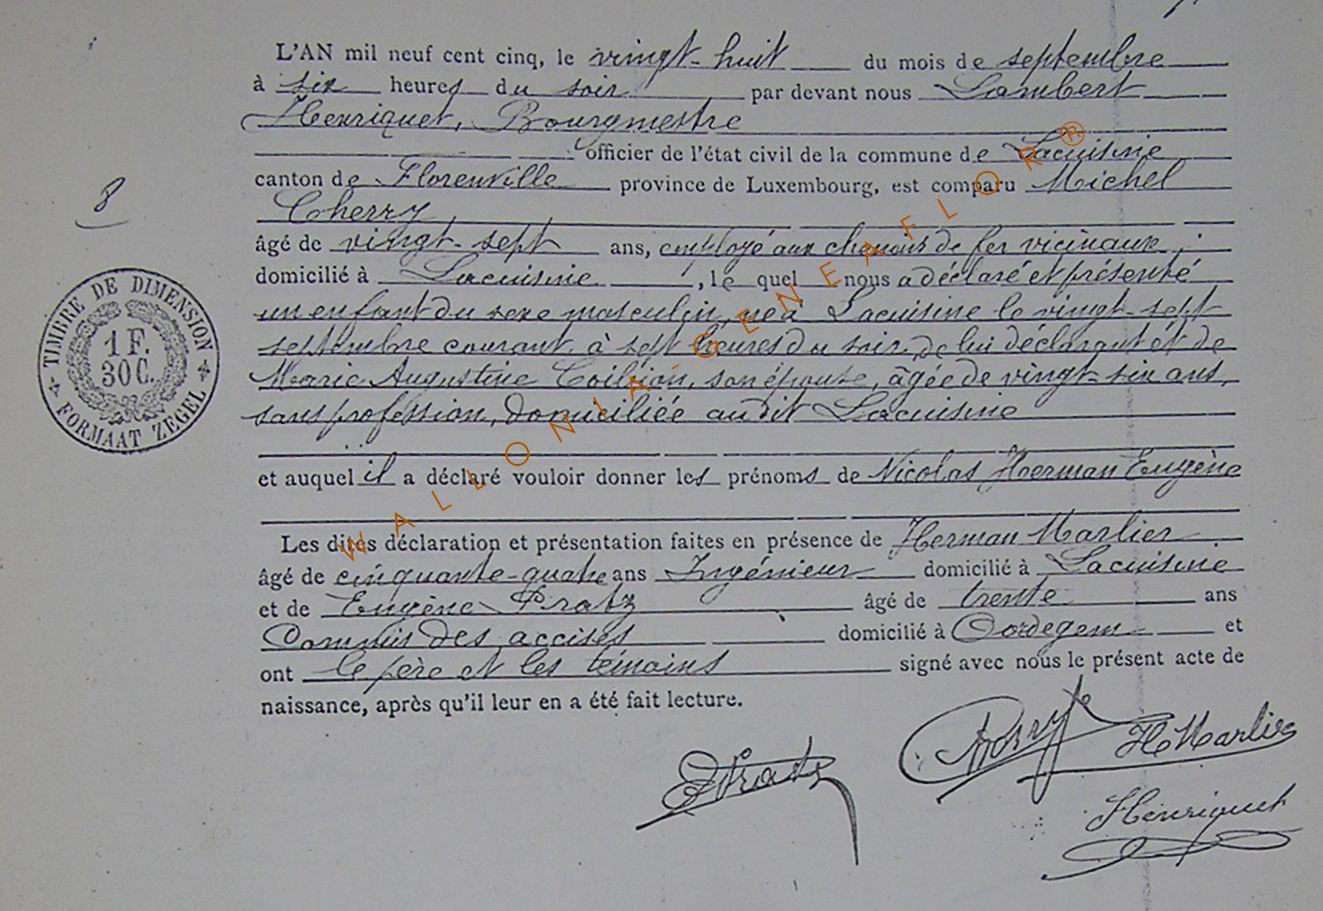 L'AN mil neuf cent cinq, le vingt-huit du mois de septembre
à six heures du soir par devant nous Lambert
Henriquet, Bourgmestre
officier de l'état civil de la commune de Lacuisine
canton de Florenville province de Luxembourg, est comparu Michel
Cherry
âgé de vingt-sept ans, employé aux chemins de fer vicinaux
domicilié à Lacuisine, le quel nous a déclaré et présenté
un enfant du sexe masculin, né à Lacuisine le vingt-sept
septembre courant à sept heures du soir de lui déclarant et de
Marie Augustine Coillion, son épouse, âgée de vingt-six ans,
sans profession, domiciliée au dit Lacuisine
et auquel il a déclaré vouloir donner les prénoms de Nicolas Herman Eugène
Les dites déclaration et présentation faites en présence de Herman Marlier
8
TIMBRE DE DIMENSION
1 F.
30 C.
FORMAAT ZEGEL
âgé de cinquante-quatre ans Ingénieur domicilié à Lacuisine
et de Eugène Pratz âgé de trente ans
Commis des accises domicilié à Oordegem et
ont le père et les témoins signé avec nous le présent acte de
naissance, après qu'il leur en a été fait lecture.
EPratz
Cherry
H Marlier
Henriquet
WALLONIA-GENEAFLOR®